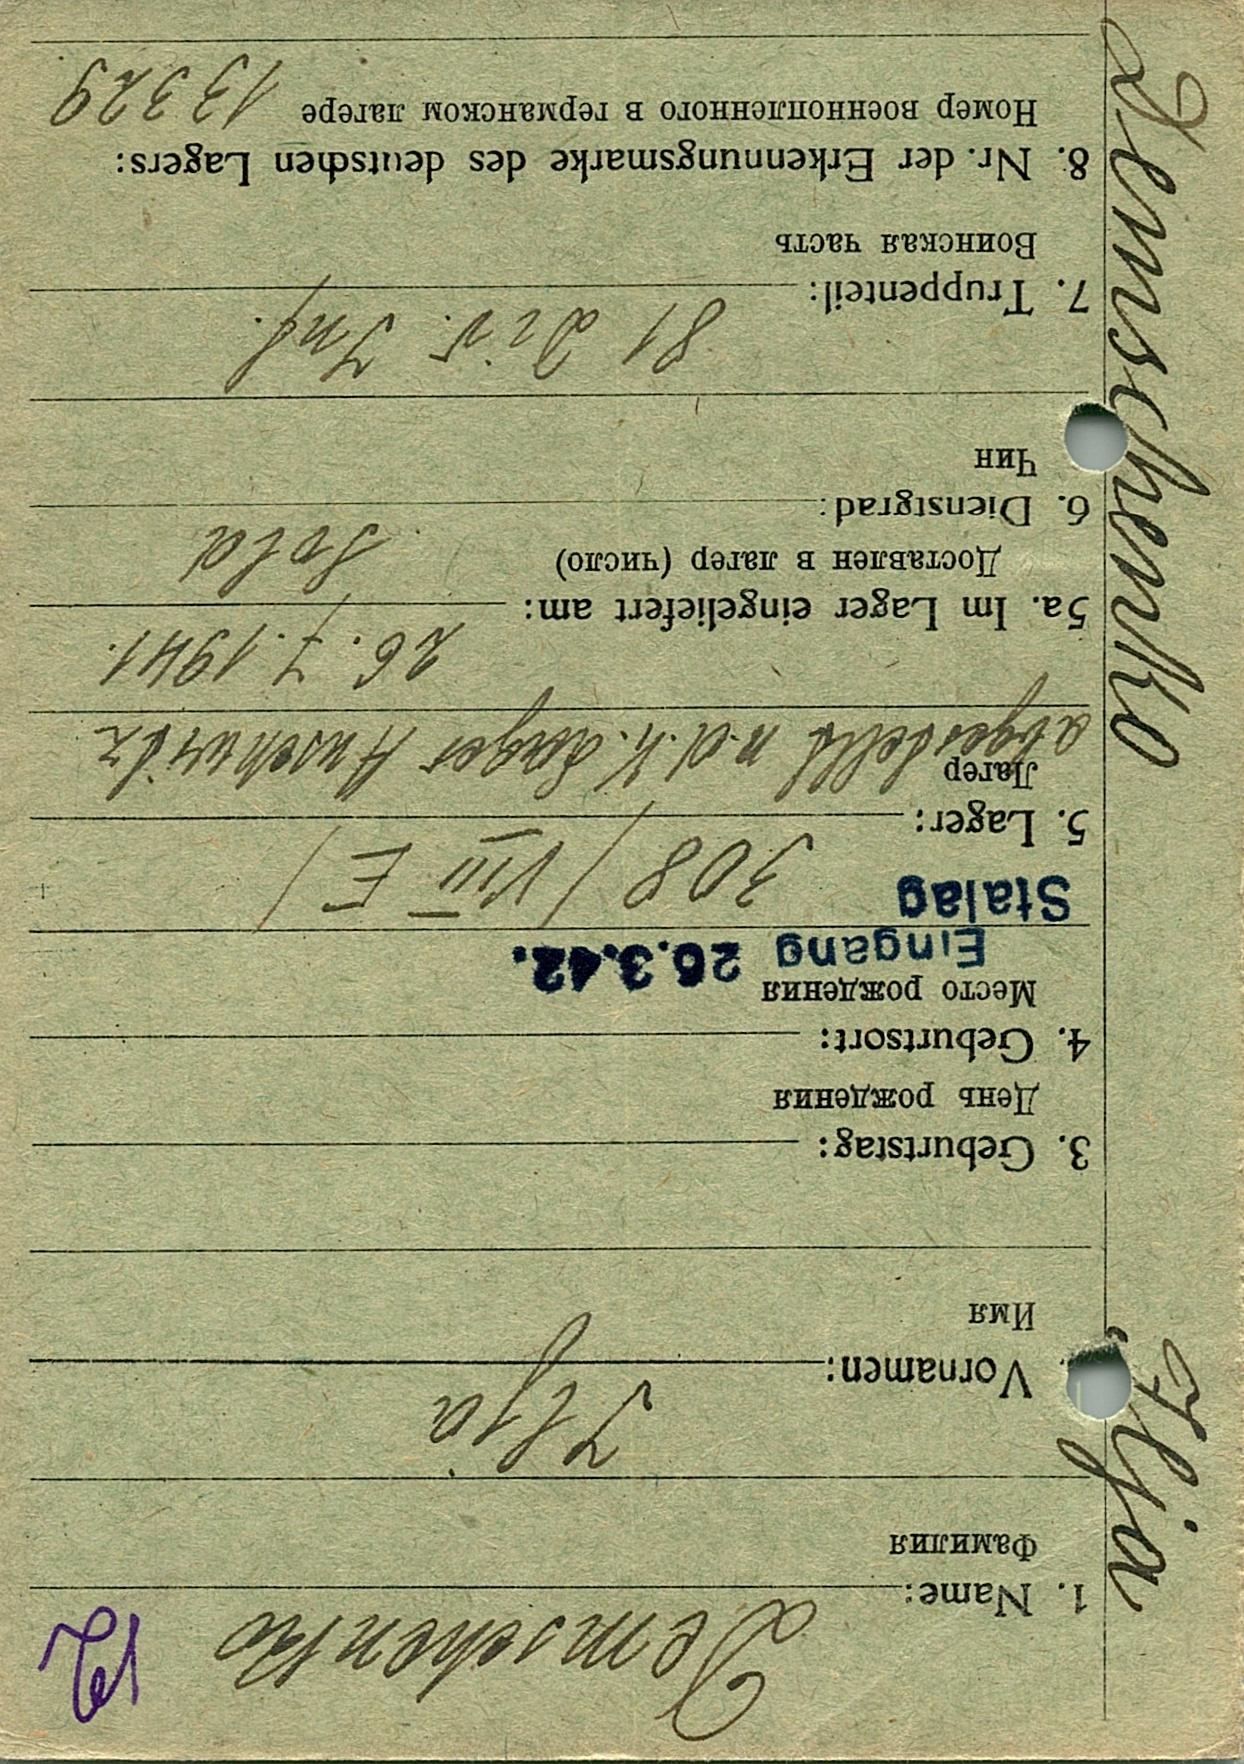 Demschenko, Ilja
12
1. Name: Demschenko
Фамилия
Vornamen: Ilja
Имя
3. Geburtstag:
День рождения
4. Geburtsort:
Место рождения
Eingang 26.3.42.
Stalag
5. Lager: 308 / VIII E /
Лагер
abgestellt n.d. K. Lager Auschwitz
5a. Im Lager eingeliefert am: 26.7.1941.
Доставлен в лагер (число)
6. Dienstgrad: Sold.
Чин
7. Truppenteil: 81 Div. Inf.
Воинская часть
8. Nr. der Erkennungsmarke des deutschen Lagers:
Номер военнопленного в германском лагере 13329